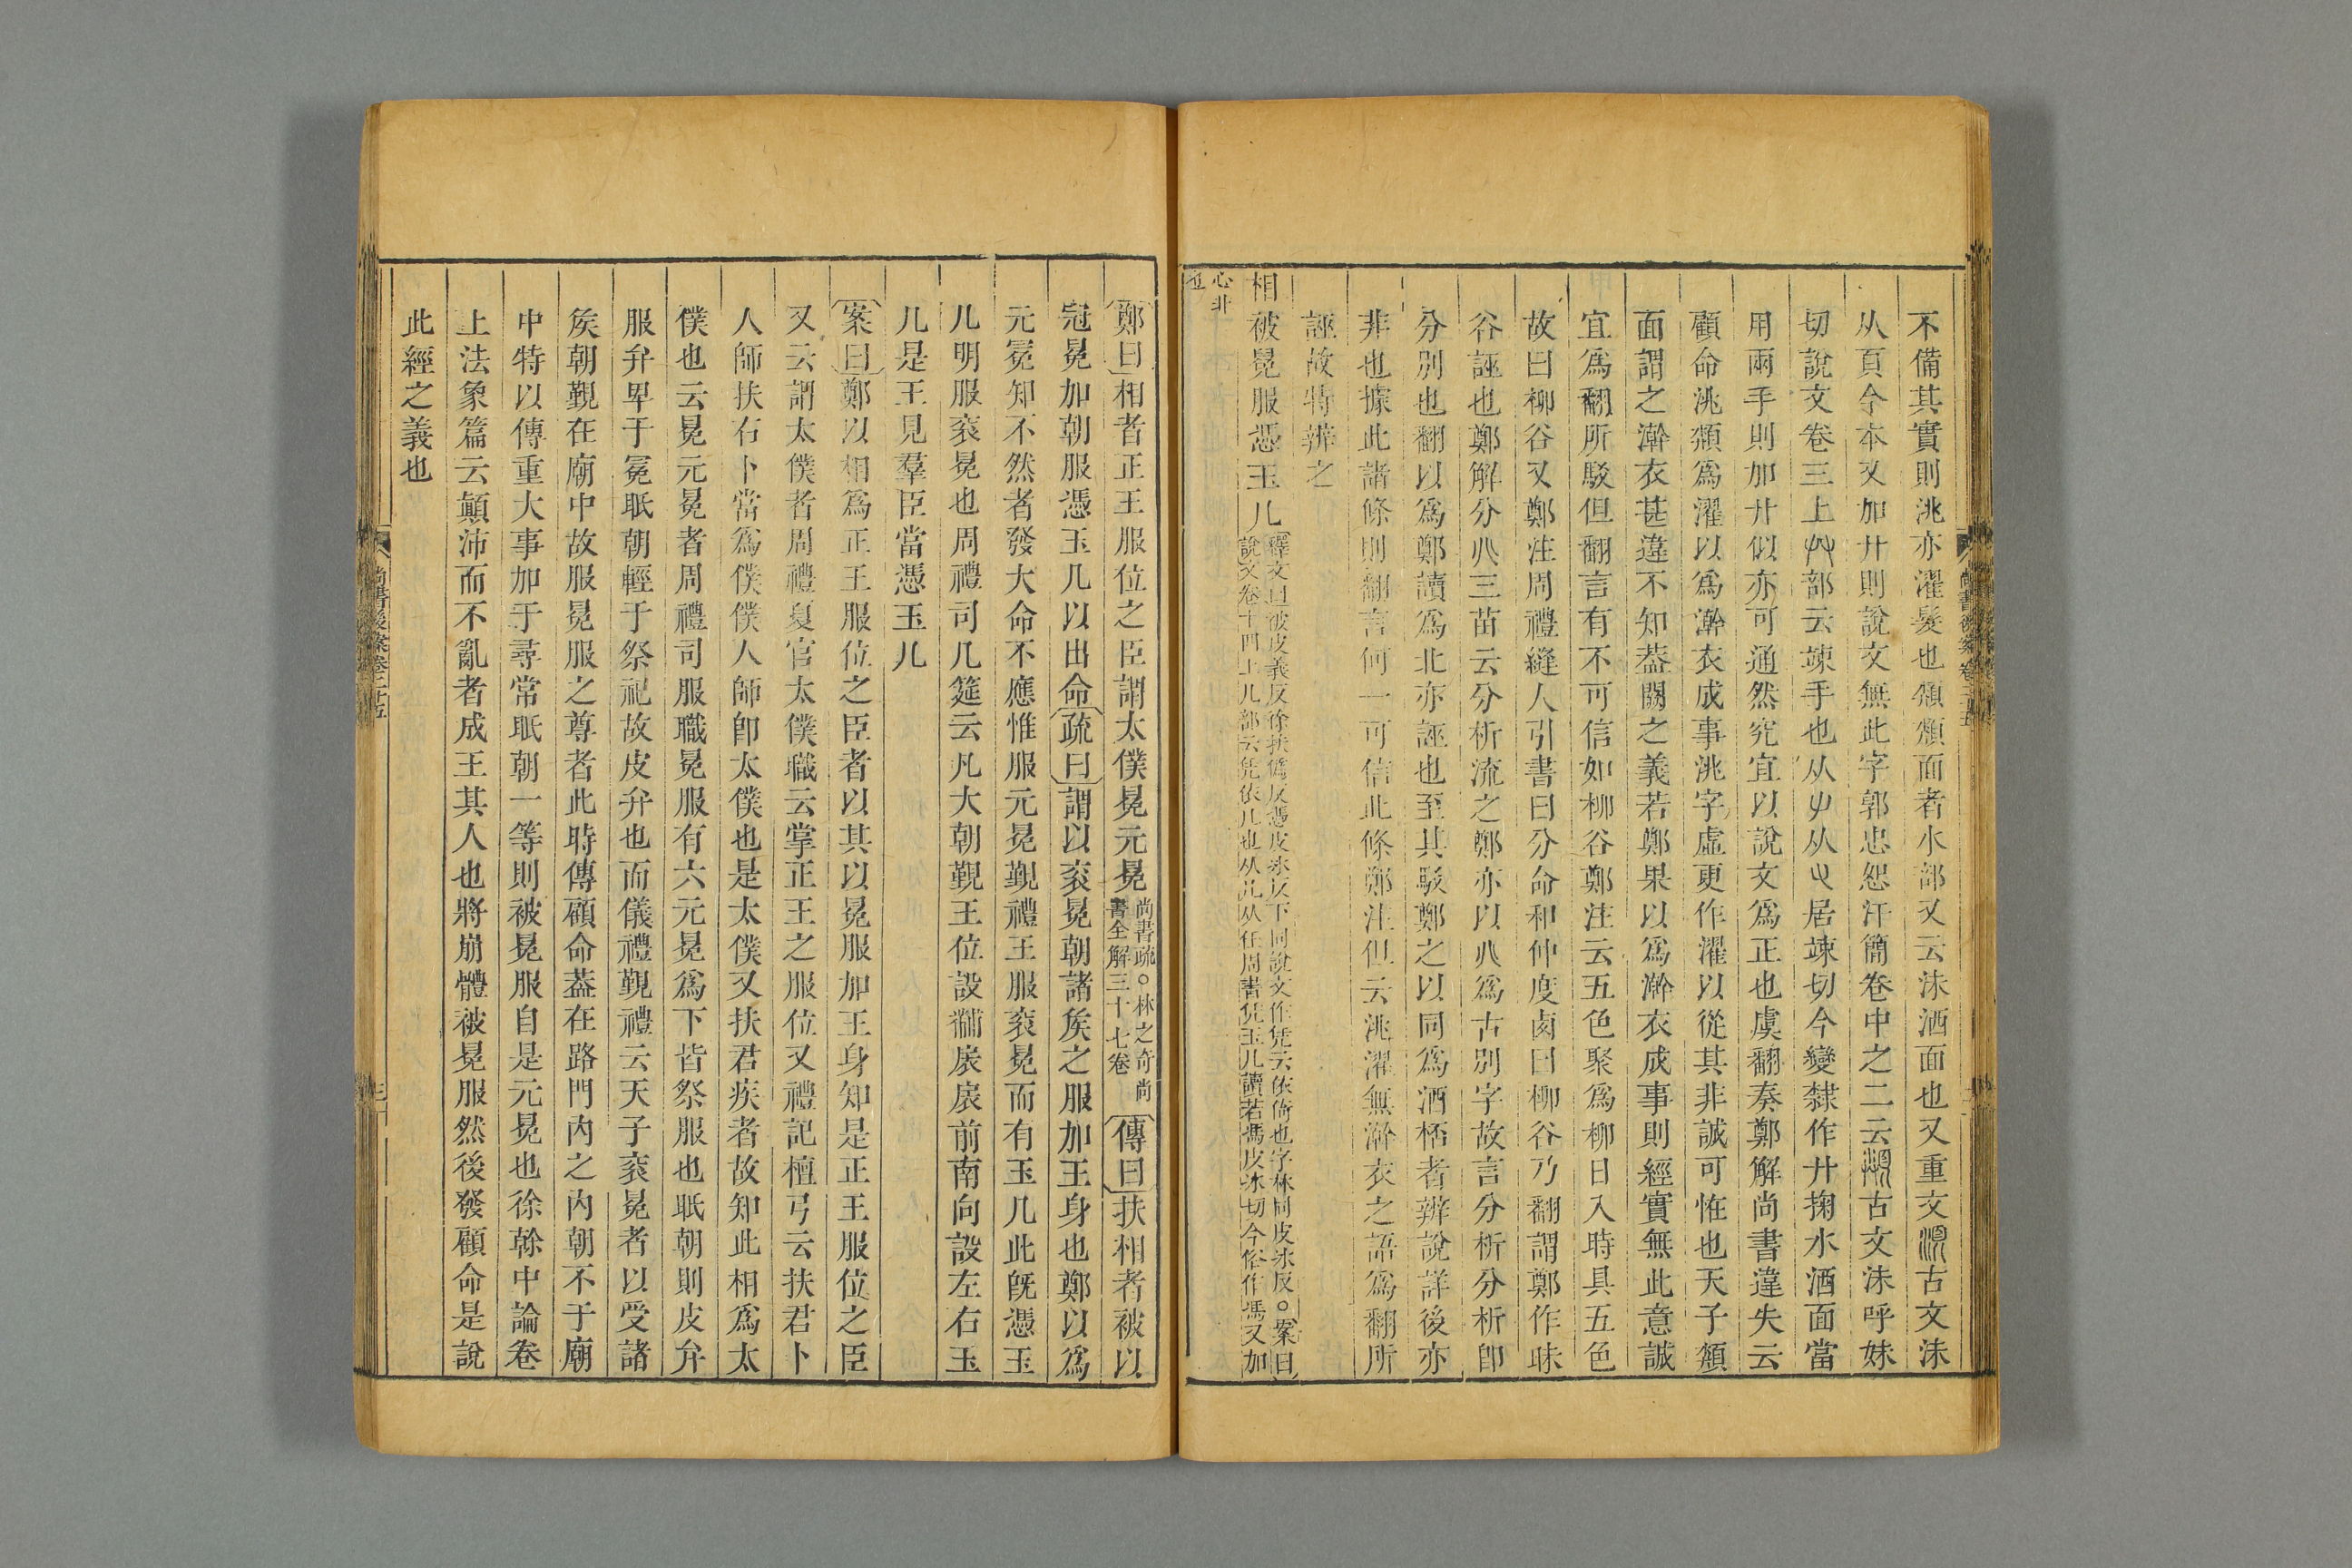 不備其實則洮亦濯髮也頮頮面者水部又云沬洒面也又重文湏古文沬
从頁今本又加廾則說文無此字郭忠恕汗簡卷中之二云古文沬呼妹
切說文卷三上𠬞部云竦手也从𠂇从又居竦切今變隸作廾掬水洒面當
用兩手則加廾似亦可通然究宜以說文爲正也虞翻奏鄭解尚書違失云
顧命洮頮爲濯以爲澣衣成事洮字虛更作濯以從其非誠可恠也天子頮
面謂之澣衣甚違不知葢闕之義若鄭果以爲澣衣成事則經實無此意誠
宜爲翻所駁但翻言有不可信如柳谷鄭注云五色聚爲柳日入時具五色
故曰柳谷又鄭注周禮縫人引書曰分命和仲度鹵曰柳谷乃翻謂鄭作昧
谷誣也鄭解分𠔁三苗云分析流之鄭亦以𠔁爲古別字故言分析分析卽
分別也翻以爲鄭讀爲北亦誣也至其駁鄭之以同爲酒桮者辨說詳後亦
非也據此諸條則翻言何一可信此條鄭注但云洮濯無澣衣之語爲翻所
誣故特辨之
相被冕服憑玉几釋文曰被皮義反徐扶僞反憑皮冰反下同說文作凭云依倚也字林同皮冰反○案曰
說文卷十四上几部云凭依几也从几从任周書凭玉几讀若馮皮冰切今俗作馮又加
心非
也
尚書後案卷二十五
鄭曰相者正王服位之臣謂太僕冕元冕尚書疏○林之奇尚書全解三十七卷傳曰扶相者被以
冠冕加朝服憑玉几以出命疏曰謂以衮冕朝諸矦之服加王身也鄭以爲
元冕知不然者發大命不應惟服元冕覲禮王服衮冕而有玉几此旣憑玉
几明服衮冕也周禮司几筵云凡大朝覲王位設黼扆扆前南向設左右玉
几是王見羣臣當憑玉几
案曰鄭以相爲正王服位之臣者以其以冕服加王身知是正王服位之臣
又云謂太僕者周禮夏官太僕職云掌正王之服位又禮記檀弓云扶君卜
人師扶右卜當爲僕僕人師卽太僕也是太僕又扶君疾者故知此相爲太
僕也云冕元冕者周禮司服職冕服有六元冕爲下皆祭服也眂朝則皮弁
服弁卑于冕眂朝輕于祭祀故皮弁也而儀禮覲禮云天子衮冕者以受諸
矦朝覲在廟中故服冕服之尊者此時傳顧命葢在路門內之內朝不于廟
中特以傳重大事加于尋常眂朝一等則被冕服自是元冕也徐幹中論卷
上法象篇云顚沛而不亂者成王其人也將崩體被冕服然後發顧命是說
此經之義也
尚書後案卷二十五